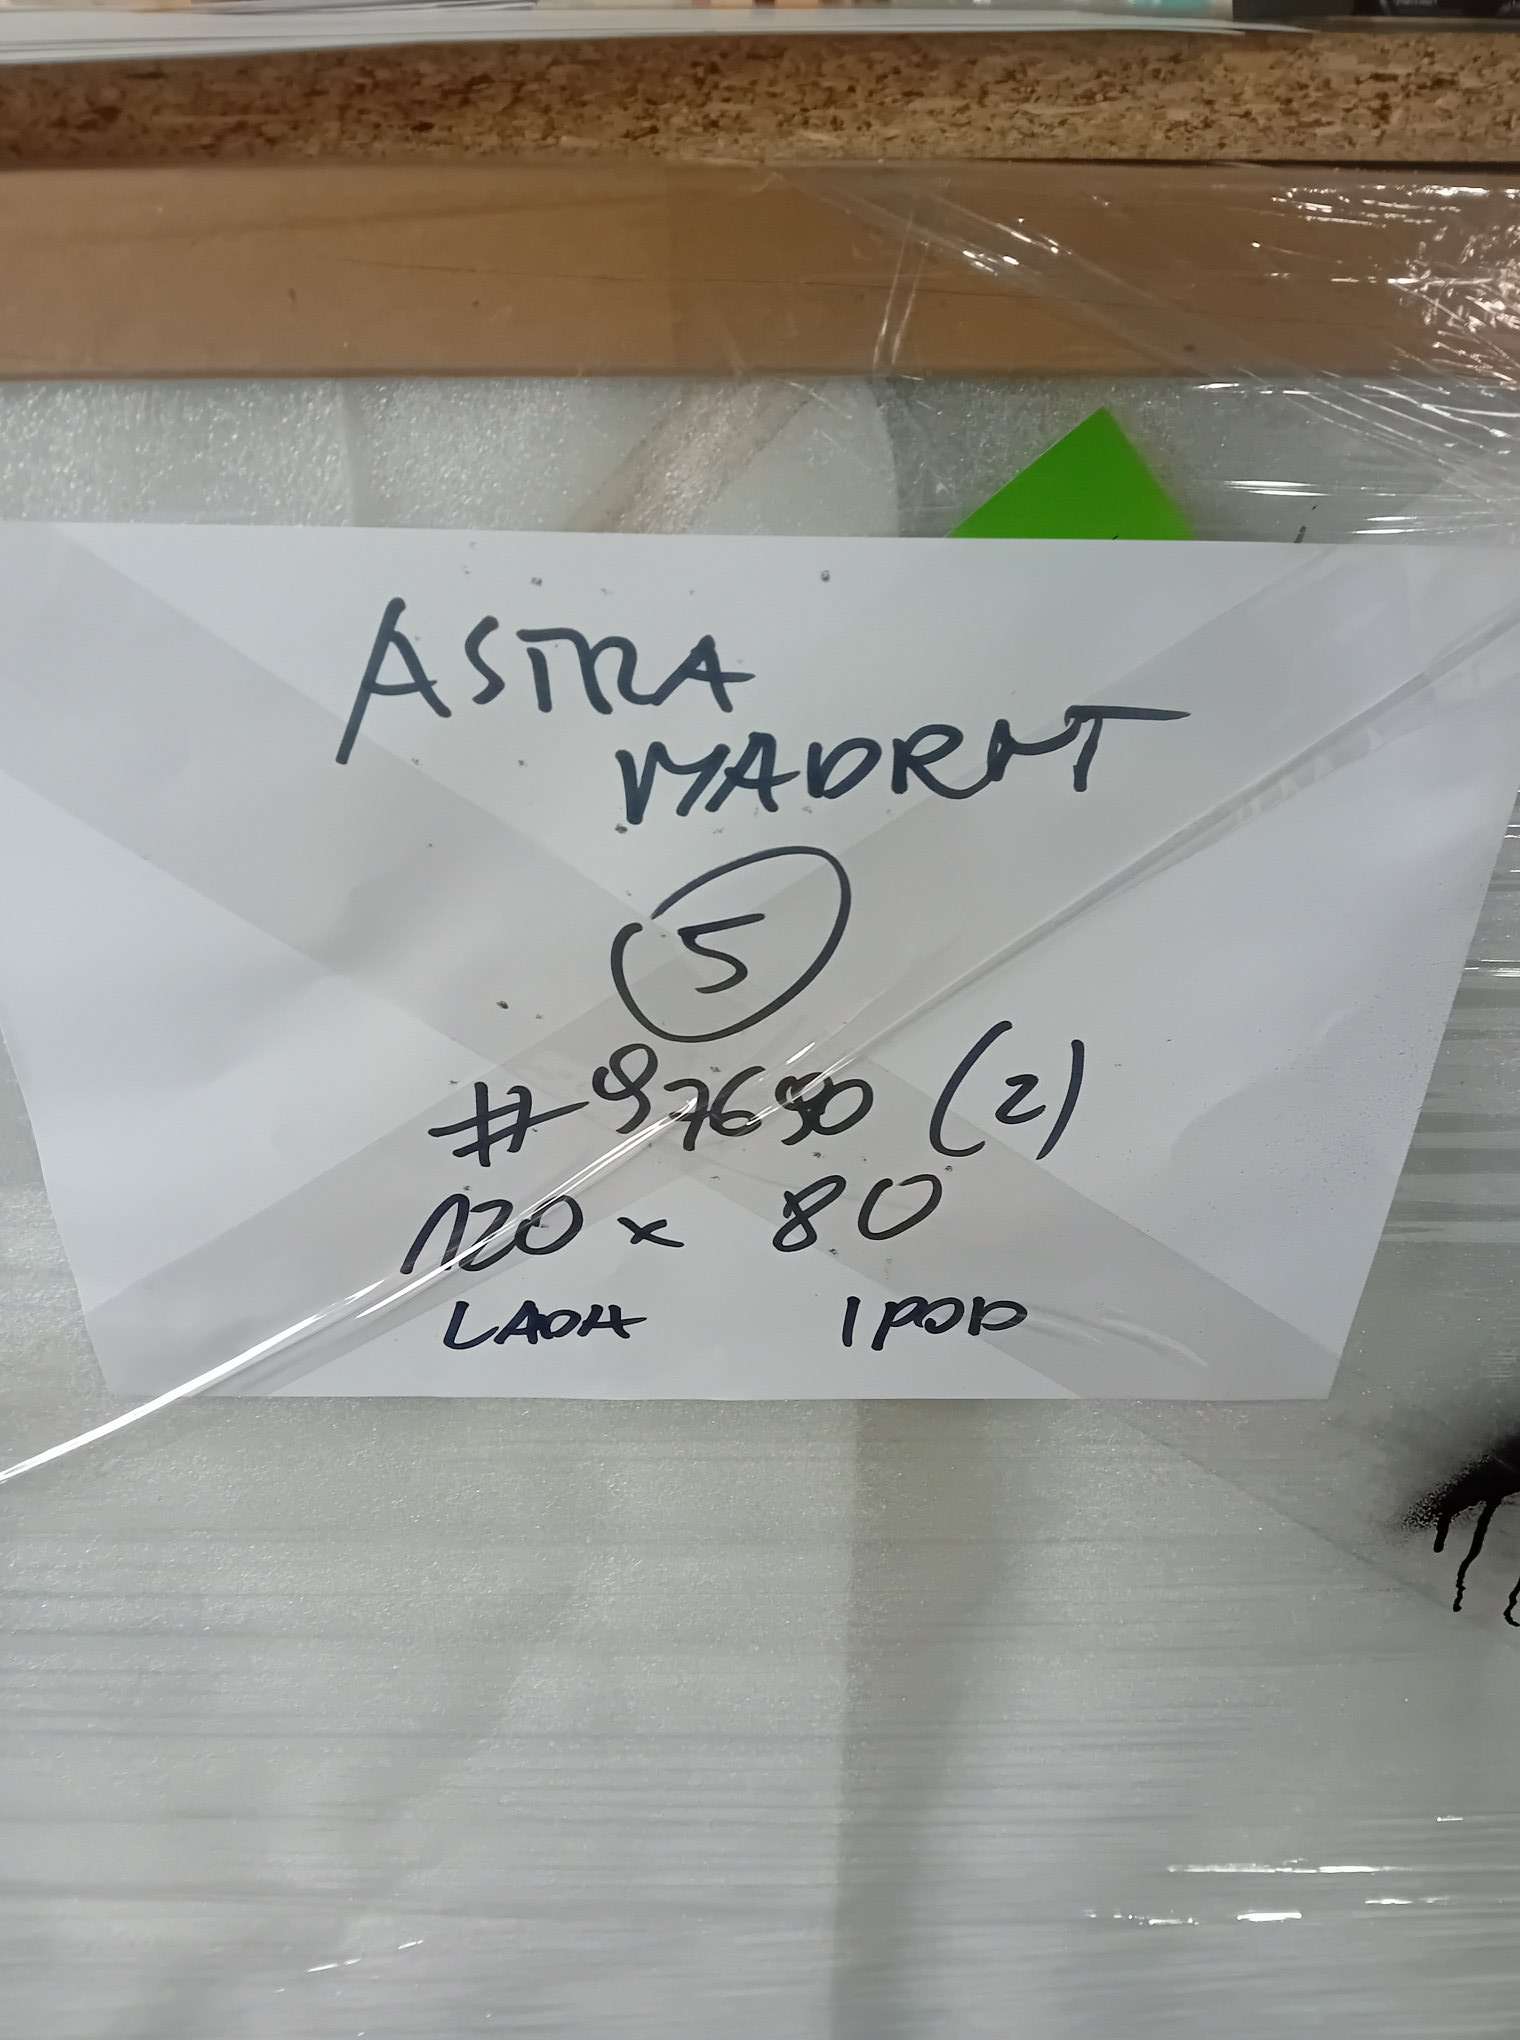 ASTRA
MADRYT
5
#97690 (2)
120 x 80
LADA 1POD